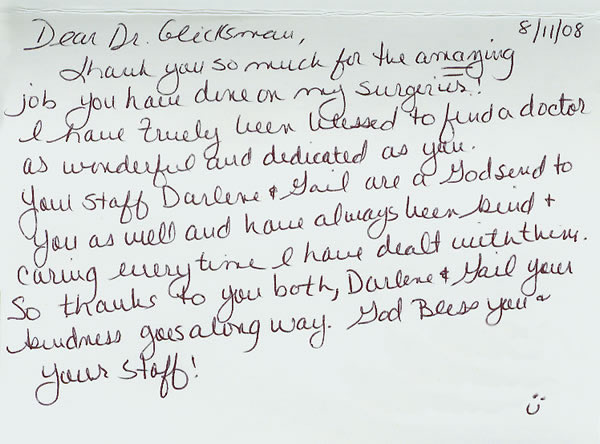 8/11/08
Dear Dr. Glicksman,
Thank you so much for the amazing
job you have done on my surgeries!
I have truely been blessed to find a doctor
as wonderful and dedicated as you.
Your staff Darlene & Gail are a God send to
you as well and have always been kind +
caring everytime I have dealt with them.
So thanks to you both, Darlene & Gail your
kindness goes along way. God Bless you ~
your staff!